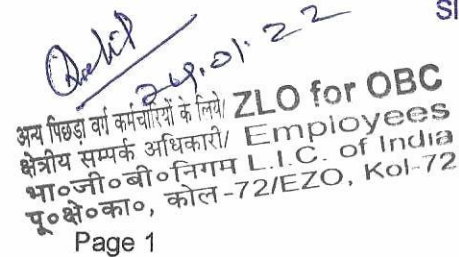 SI
24.01.22
अन्य पिछड़ा वर्ग कर्मचारियों के लिये/ ZLO for OBC
क्षेत्रीय सम्पर्क अधिकारी/ Employees
भा०जी०बी०निगम L.I.C. of India
पू०क्षे०का०, कोल-72/EZO, Kol-72
Page 1